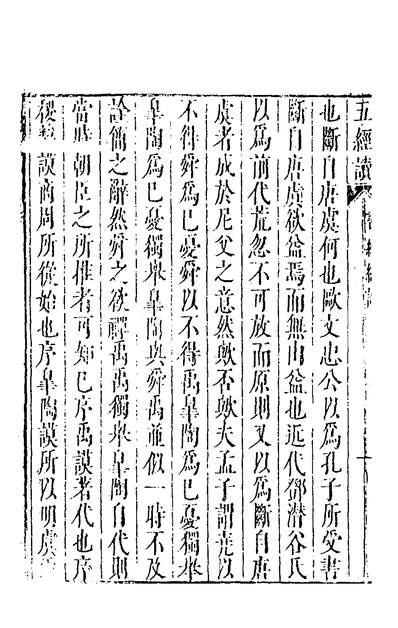 五經讀
也斷自唐虞何也歐文忠公以爲孔子所受書
斷自唐虞欲益焉而無由益也近代鄧潛谷氏
以爲前代荒忽不可放而原則又以爲斷自唐
虞者成於尼父之意然歟否歟夫孟子謂堯以
不得舜爲已憂舜以不得禹皋陶爲已憂獨舉
皋陶爲已憂獨舉皋陶與舜禹並似一時不及
詮簡之辭然舜之欲禪禹禹獨舉皋陶自代則
當時朝臣之所推者可知已序禹謨著代也序
稷 謨商周所從始也序皋陶謨所以明虞